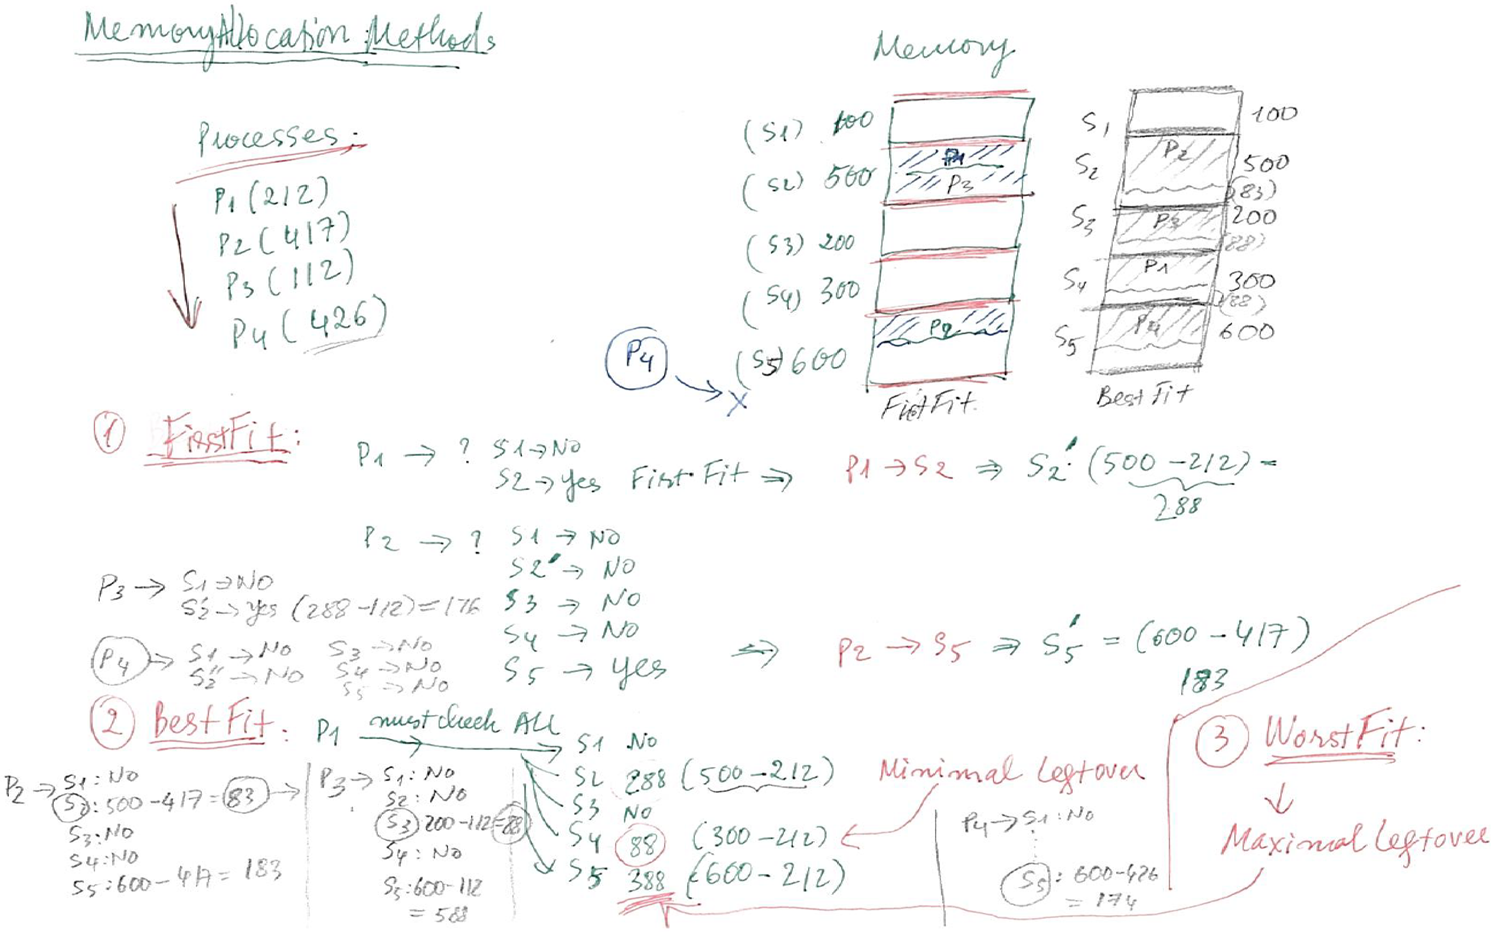 Memory Allocation Methods
Processes:
P1 (212)
P2 (417)
P3 (112)
P4 (426)
Memory
(S1) 100
(S2) 500
(S3) 200
(S4) 300
(S5) 600
P1
P3
P2
P4
X
First Fit
S1
S2
S3
S4
S5
P2
P3
P1
P4
100
500
(83)
200
(88)
300
(88)
600
Best Fit
1 First Fit:
P1 → ? S1 → No
S2 → yes First Fit ⇒ P1 → S2 ⇒ S2': (500 - 212) =
288
P2 → ? S1 → No
S2' → No
S3 → No
S4 → No
S5 → yes ⇒ P2 → S5 ⇒ S5' = (600 - 417)
183
P3 → S1 → No
S2' → yes (288 - 112) = 176
P4 → S1 → No S3 → No
S2'' → No S4 → No
S5 → No
2 Best Fit: P1 must check ALL
S1 No
S2 288 (500 - 212)
S3 No
S4 88 (300 - 212)
S5 388 (600 - 212)
Minimal Leftover
P2 → S1: No
S2: 500 - 417 = 83 →
S3: No
S4: No
S5: 600 - 417 = 183
P3 → S1: No
S2: No
S3 200 - 112 = 88
S4: No
S5: 600 - 112
= 588
P4 → S1: No
S5: 600 - 426
= 174
3 Worst Fit:
↓
Maximal Leftover